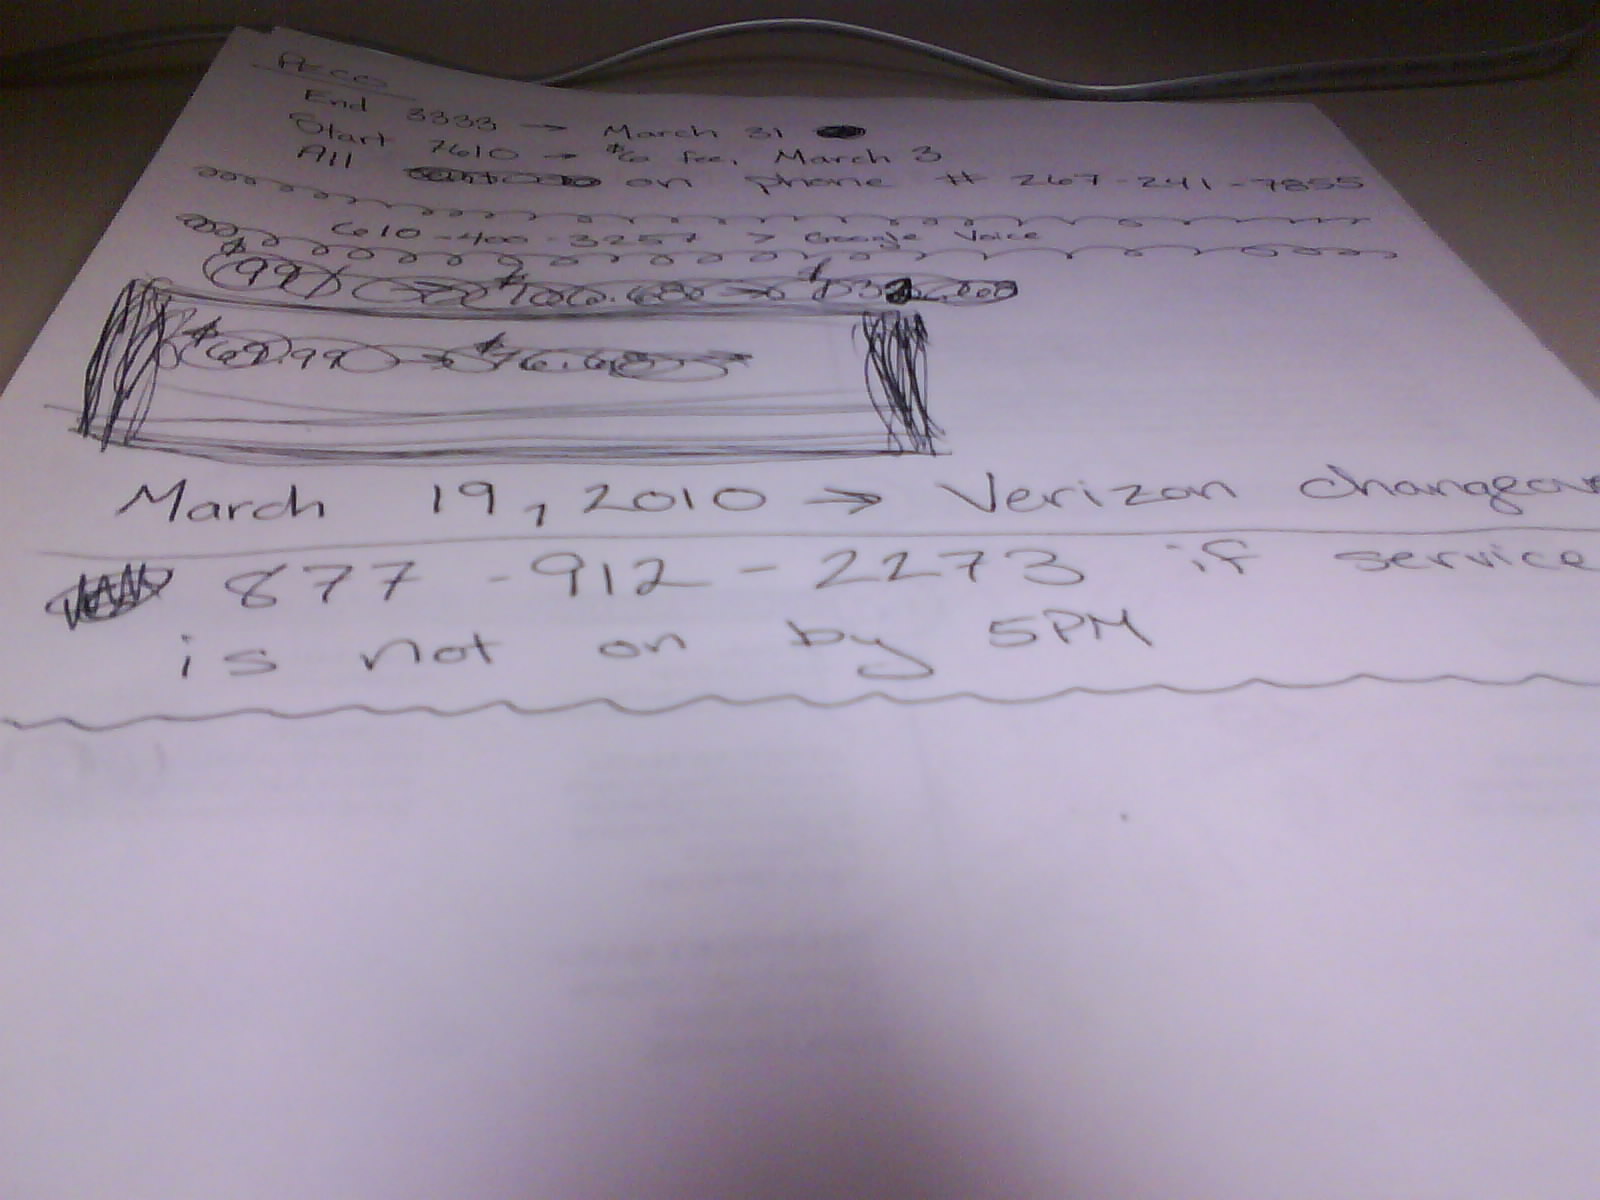 PECO
End 3333 → March 31
Start 7610 → $6 fee, March 3
All on phone # 267-241-7855
610-400-3257 > Google Voice
$69.99 → $76.68
March 19, 2010 → Verizon changeov
877-912-2273 if service
is not on by 5PM